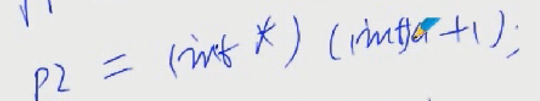 p2 = (int *) (int)a+1);